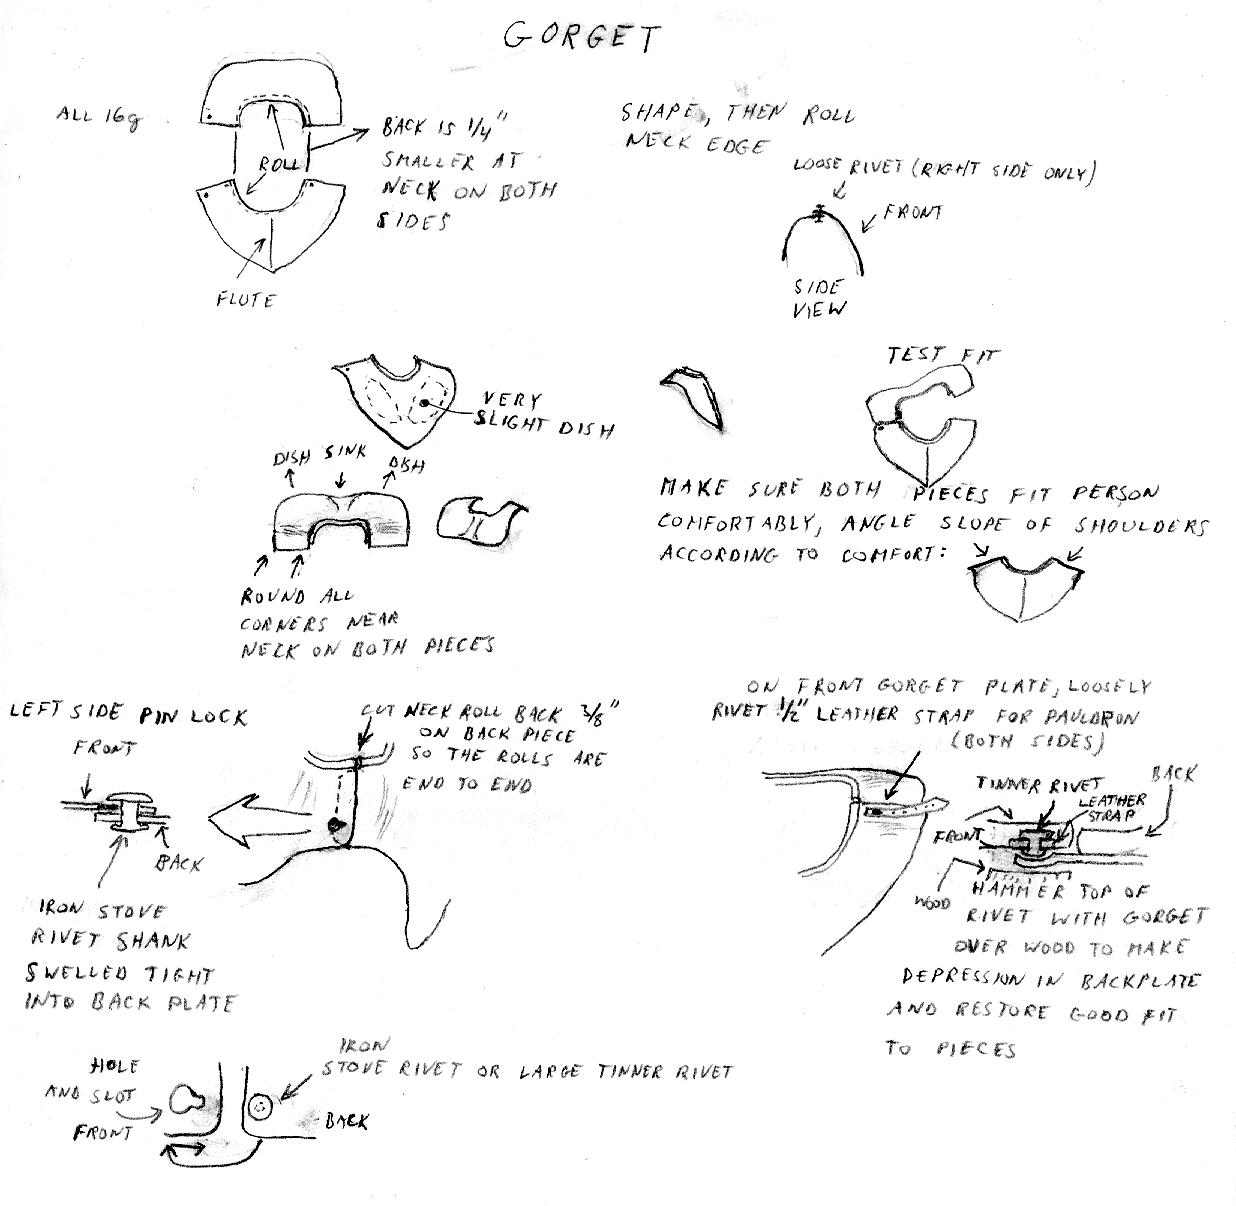 GORGET
ALL 16g
BACK IS 1/4"
SMALLER AT
NECK ON BOTH
SIDES
ROLL
FLUTE
SHAPE, THEN ROLL
NECK EDGE
LOOSE RIVET (RIGHT SIDE ONLY)
FRONT
SIDE
VIEW
VERY
SLIGHT DISH
DISH SINK DISH
ROUND ALL
CORNERS NEAR
NECK ON BOTH PIECES
TEST FIT
MAKE SURE BOTH PIECES FIT PERSON
COMFORTABLY, ANGLE SLOPE OF SHOULDERS
ACCORDING TO COMFORT:
LEFT SIDE PIN LOCK
FRONT
BACK
IRON STOVE
RIVET SHANK
SWELLED TIGHT
INTO BACK PLATE
CUT NECK ROLL BACK 3/8"
ON BACK PIECE
SO THE ROLLS ARE
END TO END
ON FRONT GORGET PLATE, LOOSELY
RIVET 1/2" LEATHER STRAP FOR PAULDRON
(BOTH SIDES)
TINNER RIVET
BACK
LEATHER
STRAP
FRONT
WOOD
HAMMER TOP OF
RIVET WITH GORGET
OVER WOOD TO MAKE
DEPRESSION IN BACKPLATE
AND RESTORE GOOD FIT
TO PIECES
HOLE
AND SLOT
FRONT
IRON
STOVE RIVET OR LARGE TINNER RIVET
BACK